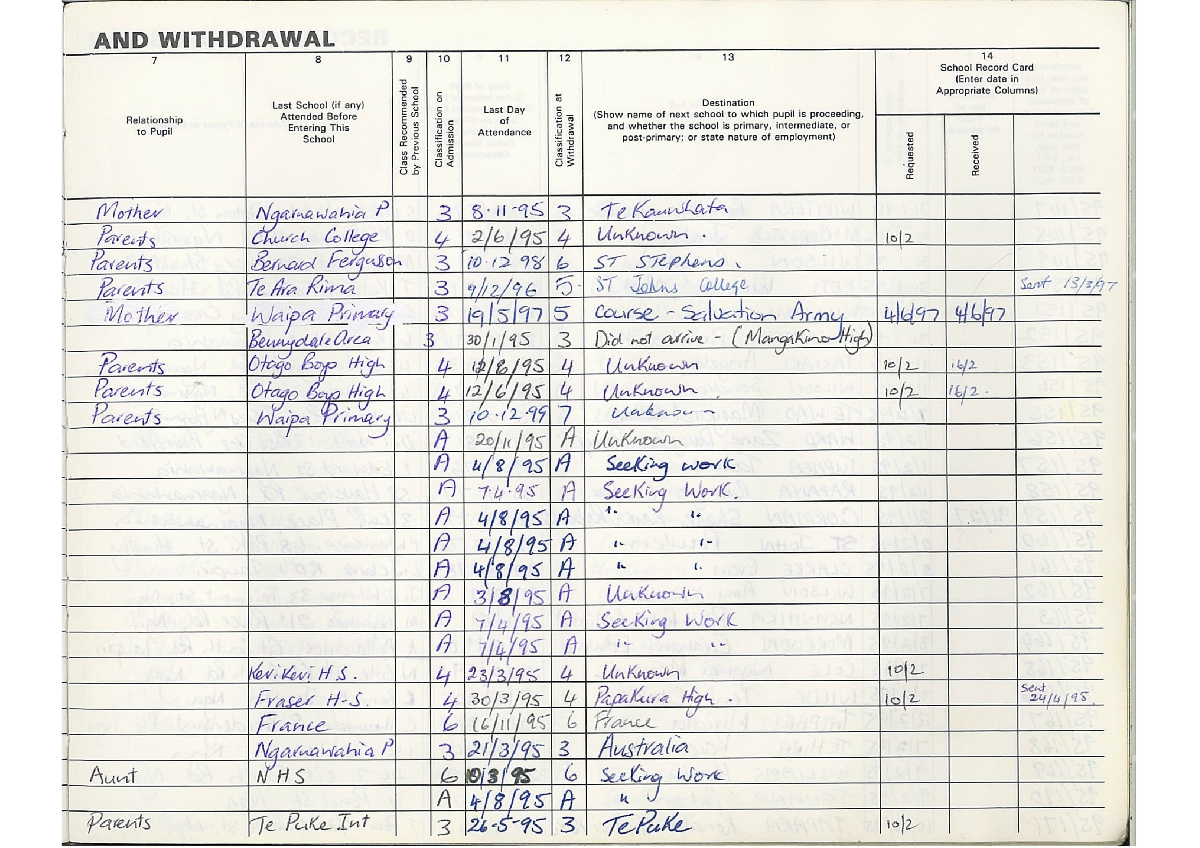 AND WITHDRAWAL
7 8 9 10 11 12 13 14
Relationship to Pupil
Last School (if any) Attended Before Entering This School
Class Recommended by Previous School
Classification on Admission
Last Day of Attendance
Classification at Withdrawal
Destination
(Show name of next school to which pupil is proceeding, and whether the school is primary, intermediate, or post-primary; or state nature of employment)
School Record Card (Enter date in Appropriate Columns)
Requested
Received
Mother Ngaruawahia P 3 8·11·95 3 Te Kauwhata
Parents Church College 4 2/6/95 4 Unknown. 10/2
Parents Bernard Ferguson 3 10·12 98 6 ST STephens.
Parents Te Ara Rima 3 9/12/96 5 ST Johns College Sent 13/3/97
Mother Waipa Primary 3 19/5/97 5 Course - Salvation Army 4/6/97 4/6/97
Bennydale Area 3 30/1/95 3 Did not arrive - (Mangakino High)
Parents Otago Boys High 4 12/6/95 4 Unknown 10/2 16/2
Parents Otago Boys High 4 12/6/95 4 Unknown 10/2 16/2.
Parents Waipa Primary 3 10·12·99 7 Unknown
A 20/11/95 A Unknown
A 4/8/95 A Seeking work
A 7·4·95 A Seeking Work.
A 4/8/95 A " "
A 4/8/95 A " "
A 4/8/95 A " "
A 3/8/95 A Unknown
A 7/4/95 A Seeking Work
A 7/4/95 A " "
Keri Keri H.S. 4 23/3/95 4 Unknown 10/2
Fraser H-S. 4 30/3/95 4 Papakura High. 10/2 Sent 24/4/95.
France 6 16/11/95 6 France
Ngaruawahia P 3 21/3/95 3 Australia
Aunt NHS 6 /3/95 6 Seeking Work
A 4/8/95 A " "
Parents Te Puke Int 3 26-5-95 3 Te Puke 10/2